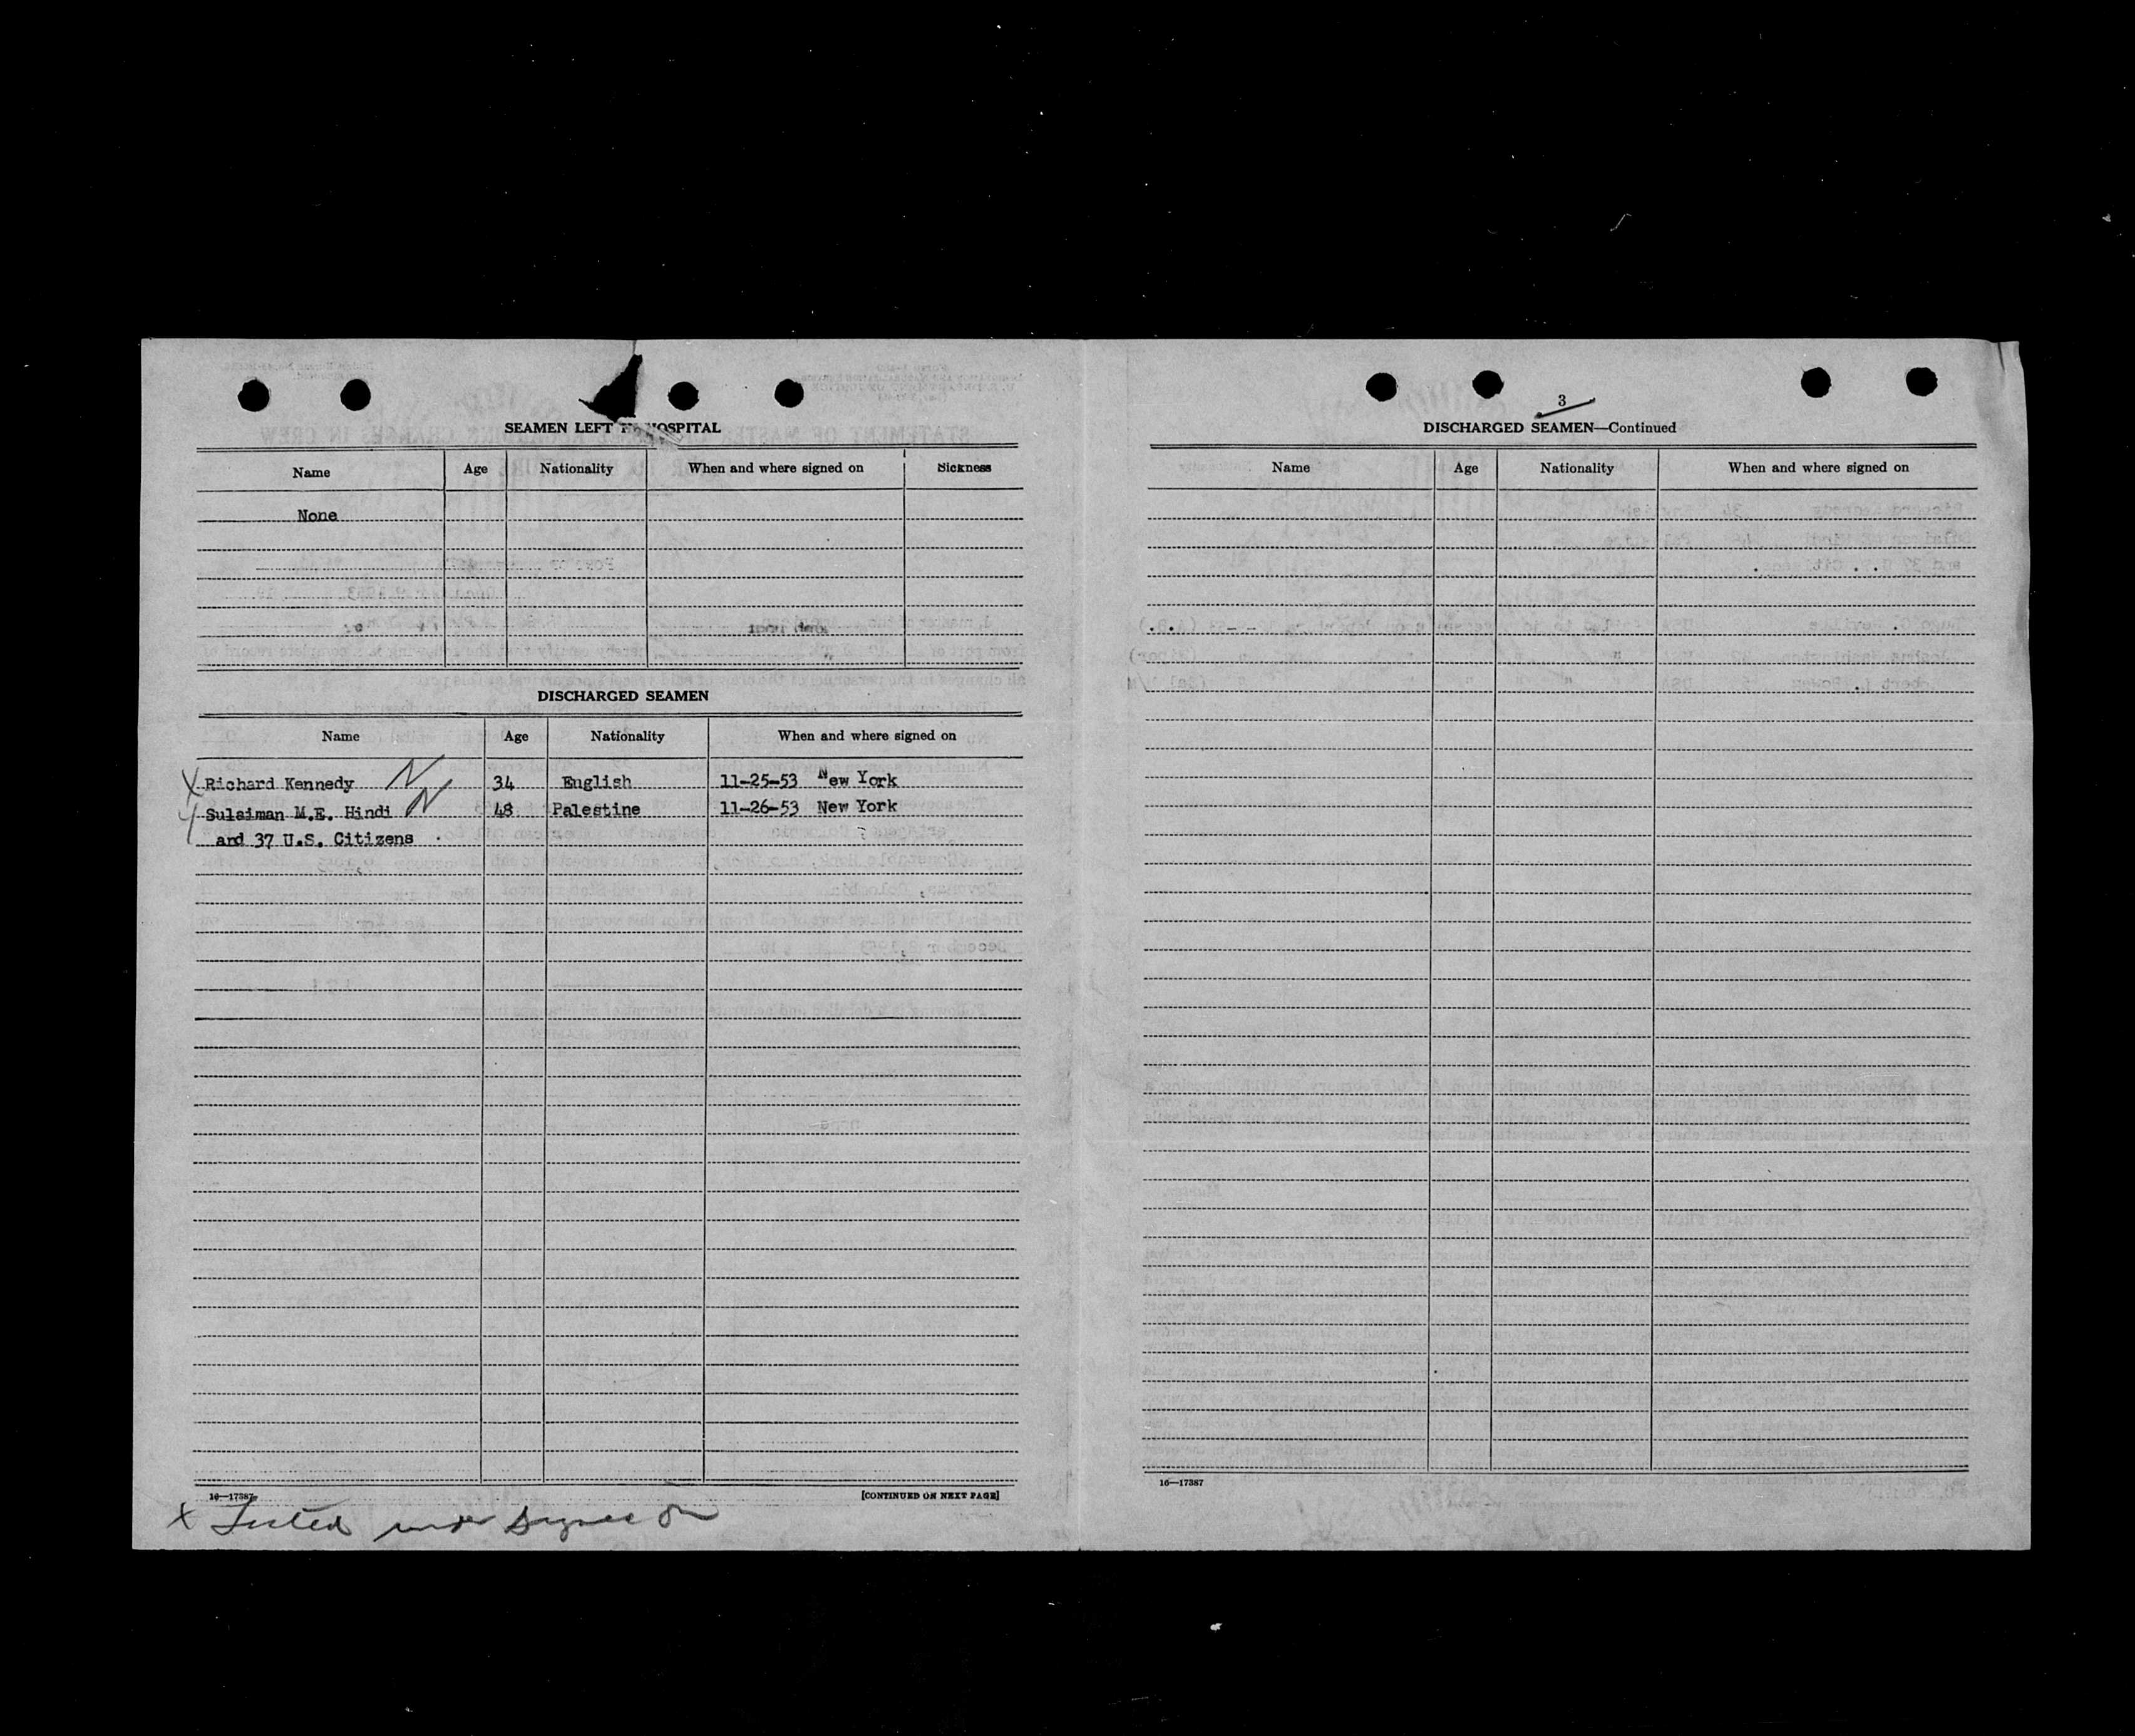 SEAMEN LEFT HOSPITAL
Name Age Nationality When and where signed on Sickness
None
DISCHARGED SEAMEN
Name Age Nationality When and where signed on
X Richard Kennedy N 34 English 11-25-53 New York
Sulaiman M.E. Hindi N 48 Palestine 11-26-53 New York
and 37 U.S. Citizens .
16—17387
[CONTINUED ON NEXT PAGE]
X Listed under Signed On
3
DISCHARGED SEAMEN—Continued
Name Age Nationality When and where signed on
16—17387